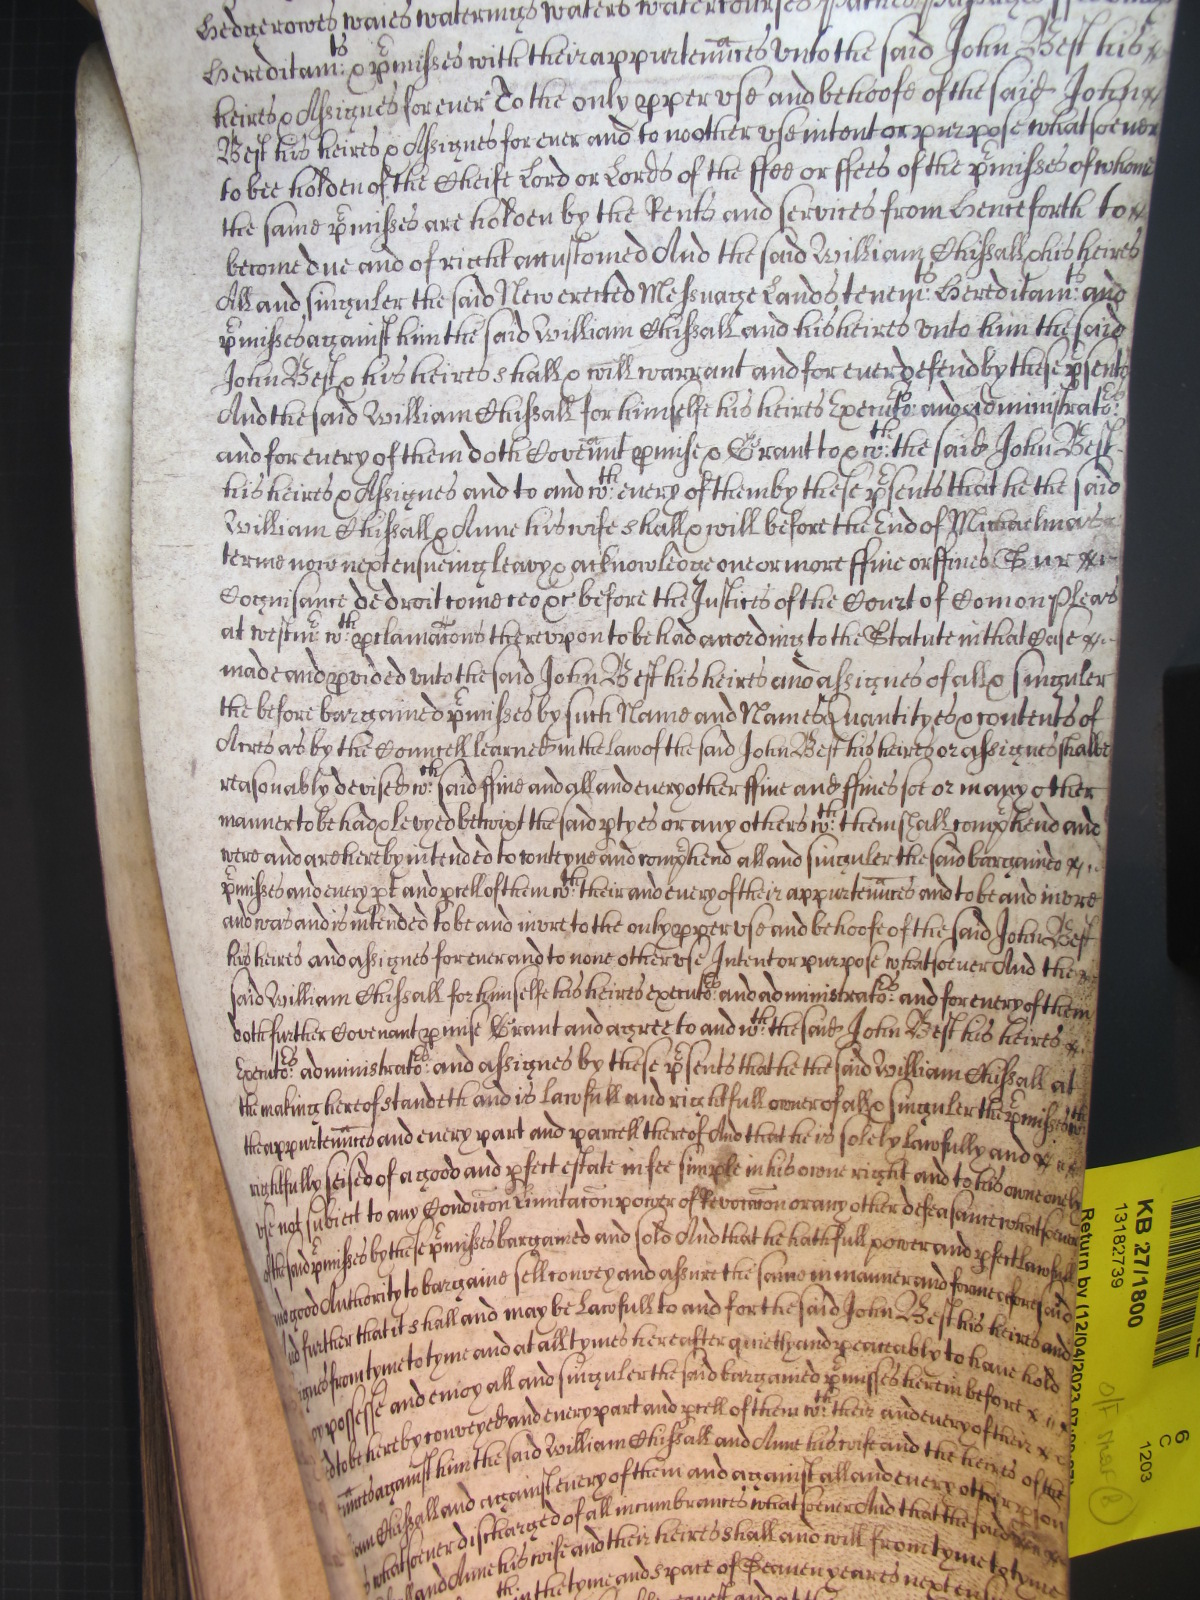 Hedgerowes waies waterings waters watercourses pathes passages
Hereditam:ts & p̄misses with their appurten̄nces vnto the said John Best his
heires & Assignes for ever To the only p̱per vse and behoofe of the said John
Best his heires & Assignes for ever and to no other vse intent or purpose whatsoever
to bee holden of the Cheife Lord or Lords of the ffee or ffees of the p̄misses of whome
the same p̄misses are holden by the Rents and services from henceforth to
become due and of right accustomed And the said William Chissall & his heires
All and singuler the said New erected Messuage Lands tenem:ts Hereditam:ts and
p̄misses against him the said William Chissall and his heires vnto him the said
John Best & his heires shall & will warrant and for ever defend by these p̄sents
And the said William Chissall for himselfe his heires Executo:rs and Administrato:rs
and for every of them doth Coven̄nt p̱mise & Grant to & w:th the said John Best
his heires & Assignes and to and w:th every of them by these p̄sents that he the said
William Chissall & Anne his wife shall & will before the End of Michaelmas
terme now next ensueing leavy & acknowledge one or more ffine or ffines Sur
Cognisance de droit come ceo &c before the Justices of the Court of Comon Pleas
at westm:r w:th p̱clamac̄ons therevpon to be had according to the Statute in that Case
made and p̱vided vnto the said John Best his heires and assignes of all & singuler
the before bargained p̄misses by such Name and Names Quantityes & contents of
Acres as by the Councell learned in the law of the said John Best his heires or assignes shalbe
reasonably devised w:ch said ffine and all and every other ffine and ffines soe or in any other
manner to be had & levyed betwixt the said p̱tyes or any others w:th them shall comp̄hend and
were and are hereby intended to conteyne and comp̄hend all and singuler the said bargained
p̄misses and every p̱t and p̱cell of them w:th their and every of their appurten̄nces and to be and inure
and was and is intended to be and inure to the only p̱per vse and behoofe of the said John Best
his heires and assignes for ever and to none other vse Intent or purpose whatsoever And the
said William Chissall for himselfe his heires executo:rs and administrato:rs and for every of them
doth further Covenant p̱mise Grant and agree to and w:th the said John Best his heires
Executo:rs administrato:rs and assignes by these p̄sents that he the said William Chissall at
the making hereof standeth and is Lawfull and rightfull owner of all & singuler the p̄misses w:th
the appurten̄nces and every part and parcell thereof And that he is solely Lawfully and
rightfully seised of a good and p̱fect estate in fee simple in his owne right and to his owne onely
vse not subject to any Condic̄on Limitac̄on power of Revocac̄on or any other defeasance whatsoever
of the said p̄misses by these p̄misses bargained and sold And that he hath full power and p̱fect Lawfull
and good Authority to bargaine sell convey and assure the same in manner and forme before said
And further that it shall and may be Lawfull to and for the said John Best his heires and
ignes from tyme to tyme and at all tymes hereafter quietly and peaceably to have hold
py possesse and enioy all and singuler the said bargained p̄misses herein before
ed to be hereby conveyed and every part and p̱cell of them w:th their and every of their
n̄nces against him the said William Chissall and Anne his wife and the heires of the
iam Chissall and against every of them and against all and every other p̱son
whatsoever discharged of all incumbrances whatsoever And that the said
ll and Anne his wife and their heires shall and will from tyme to tyme
in the tyme and space of Seaven yeares next
KB 27/1800
13182739
Return by (12/04/2023
6
C
1203